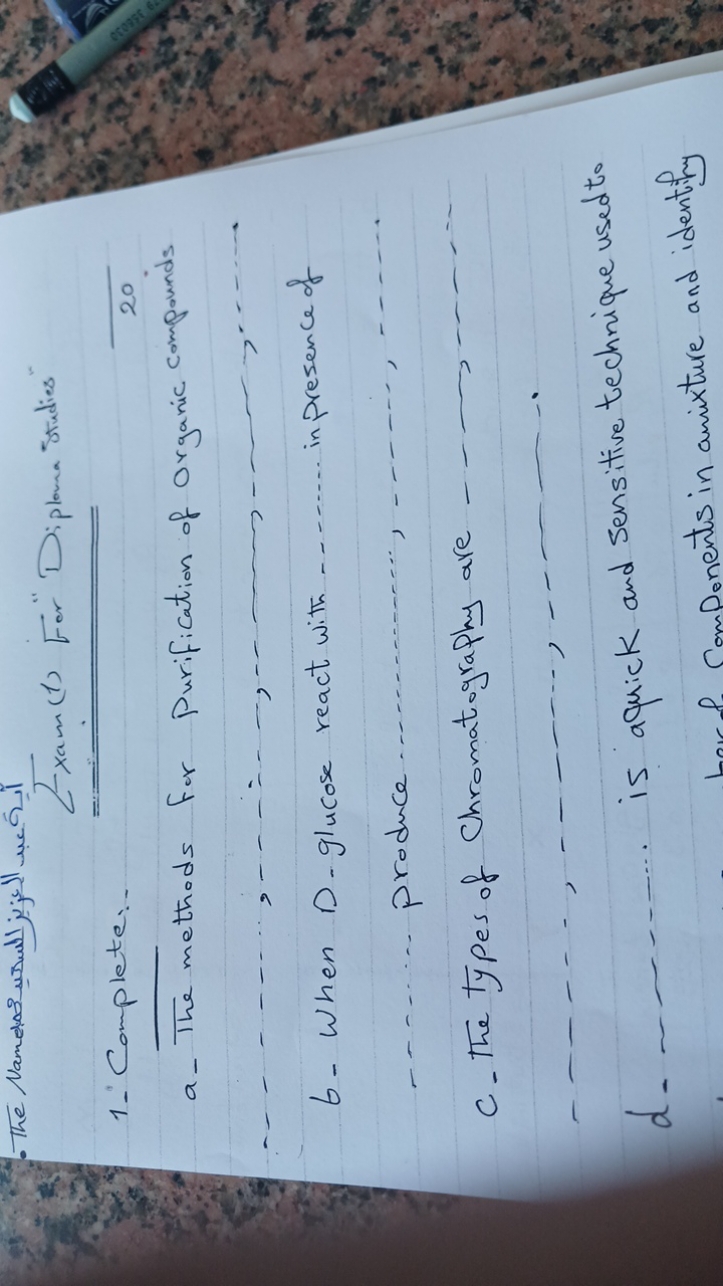 • The Name:
Exam (1) For "Diploma Studies"
20
1- Complete:-
a- The methods for purification of organic compounds
-------, -------, -------, -------, -------, -------.
b- When D-glucose react with --------- in presence of
--------- produce ............, -------, -------.
c- The types of Chromatography are -------, -------
-------, -------, -------.
d- ---------- is a quick and sensitive technique used to
Components in a mixture and identify